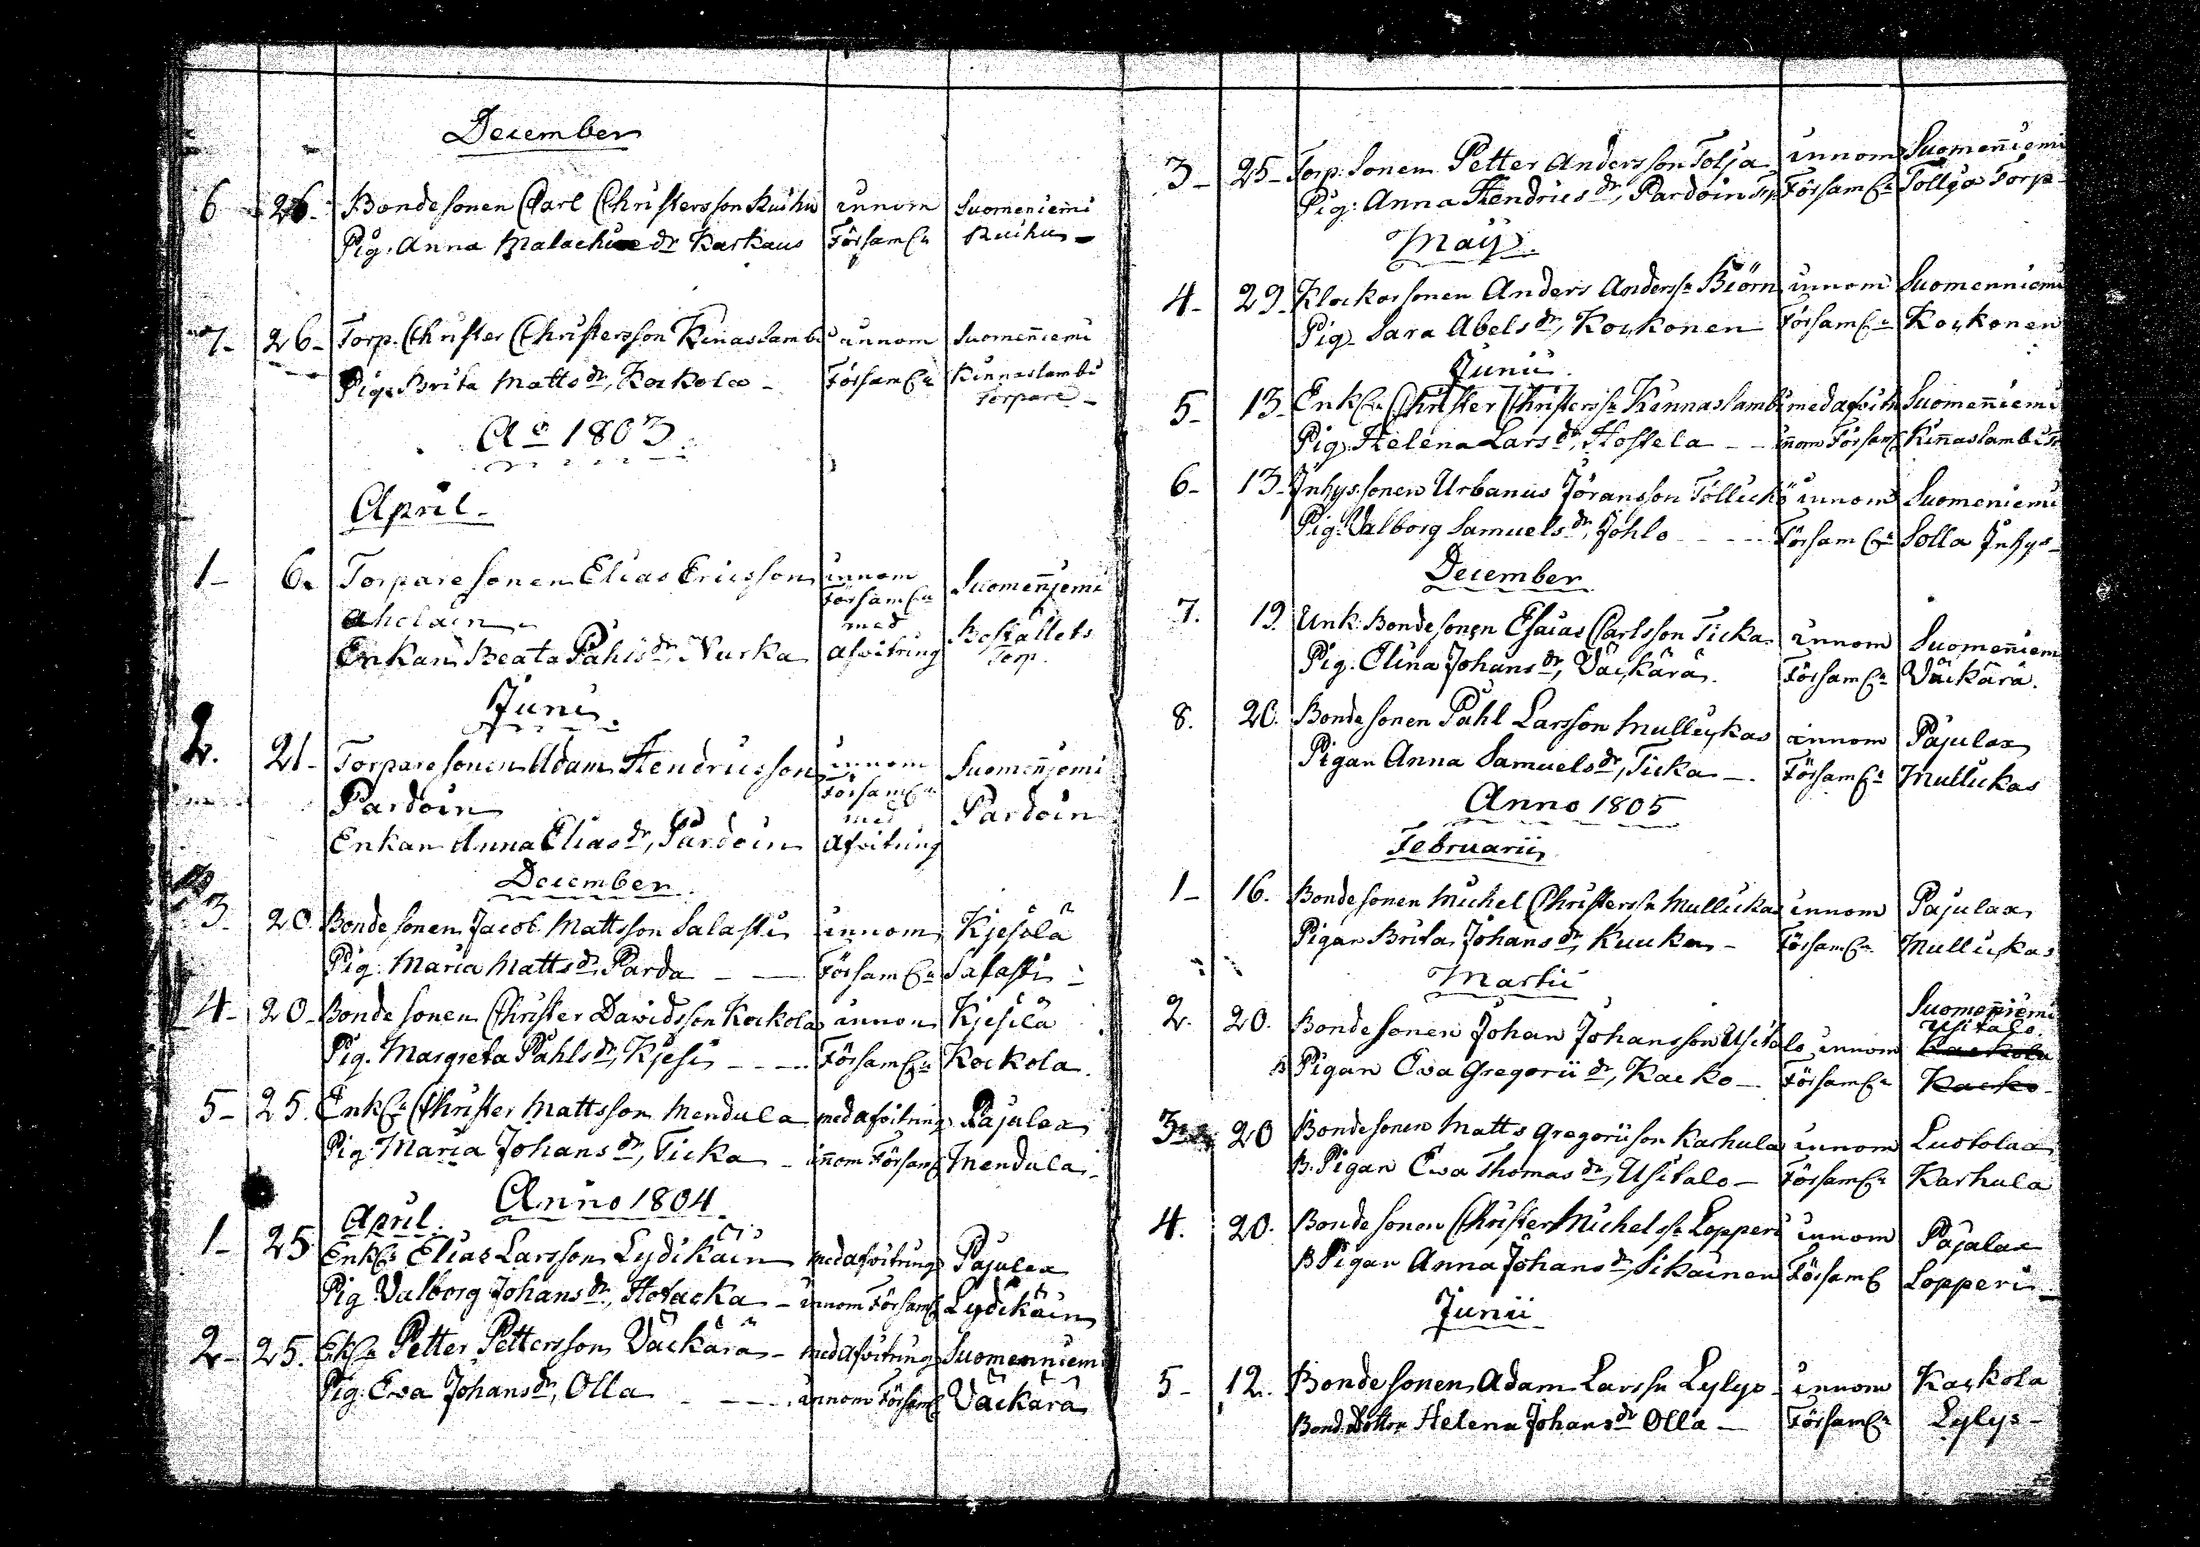 December
6 26. Bondesonen Carl Christersson Ruihu innom Suomeniemi
Pig. Anna Malachiæ dr Karkaus Församl:n Ruihu
7. 26. Torp. Christer Christersson Kinaslambi innom Suomeñiemi
Pig. Brita Matts dr, Kockola Församl:n Kinnaslambi
Torpare
Ao 1803.
April.
1 6. Torparesonen Elias Ericsson innom Suomenniemi
Aholain Församl:n
Enkan Beata Påhls dr, Nurka med Afvitring Boställets Torp.
Juni.
2. 21. Torparesonen Adam Hendricsson innom Suomenniemi
Pardoin Församl:n Pardoin
Enkan Anna Elias dr, Pardoin med Afvitring
December
3. 20. Bondesonen Jacob Mattsson Salasti innom Kjesilä
Pig. Maria Matts dr, Parda Församl:n Salasti
4. 20. Bondesonen Christer Davidsson Kockola innom Kjesilä
Pig. Margreta Påhls dr, Kjesi Församl:n Kockola.
5. 25. Enkl:n Christer Mattsson Mendula med afvitring Pajulax
Pig. Maria Johans dr, Ticka iñom Församl Mendula
Anno 1804.
April.
1. 25 Enkl:n Elias Larsson Lydikäin med afvitring Pajulax
Pig. Valborg Johans dr, Hotacka innom Församl Lydikäin
2. 25. Ekl:n Petter Pettersson Väckärä med Afvitring Suomenniemi
Pig. Ewa Johans dr, Olla innom Församl Väckärä
3 25 Torp. Sonen Petter Andersson Tolja innom Suomeñiemi
Pig: Anna Hendrics dr, Pardoin Församl:n Tollja Torp
Maij.
4. 29. Klockarsonen Anders Anderss:n Biörn innom Suomenniemi
Pig. Sara Abels dr, Kockonen Församl:n Kockonen
Junii.
5. 13. Enkl:n Christer Christerss:n Kinnaslambi med afvitr Suomeñiemi
Pig. Helena Lars dr, Hostela iñom Församl Kiñaslambi
6. 13. Inhys.sonen Urbanus Jöransson Töllickö innom Suomeniemi
Pig. Valborg Samuels dr, Johlo Församl:n Solla Inhys
December
7. 19. Unk. Bondesonen Esaias Carlsson Ticka innom Suomeñiem
Pig. Elina Johans dr, Väckärä. Församl:n Väckärä.
8. 26. Bondesonen Påhl Larsson Mullickas innom Pajulax
Pigan Anna Samuels dr, Ticka Församl:n Mullickas
Anno 1805
Februarii
1 16. Bondesonen Michel Christerss:n Mullickas innom Pajulax
Pigan Brita Johans dr, Kuucka Församl:n Mullickas
Martii
2. 20. Bondesonen Johan Johansson Usitalo innom Suomeñiemi Usitalo.
B Pigan Ewa Gregorii dr, Kacko Församl:n Kacko
3 20 Bondesonen Matts Gregorii son Karhula innom Luotolax
B. Pigan Ewa Thomas dr, Usitalo Församl:n Karhula
4. 20. Bondesonen Christer Michelss:n Lopperi innom Pajulax
B Pigan Anna Johans dr, Sikainen Församl Lopperi
Junii
5 12. Bondesonen Adam Larss:n Lylys innom Kaskola
Bond.Dottn Helena Johans dr Olla Församl:n Lylys